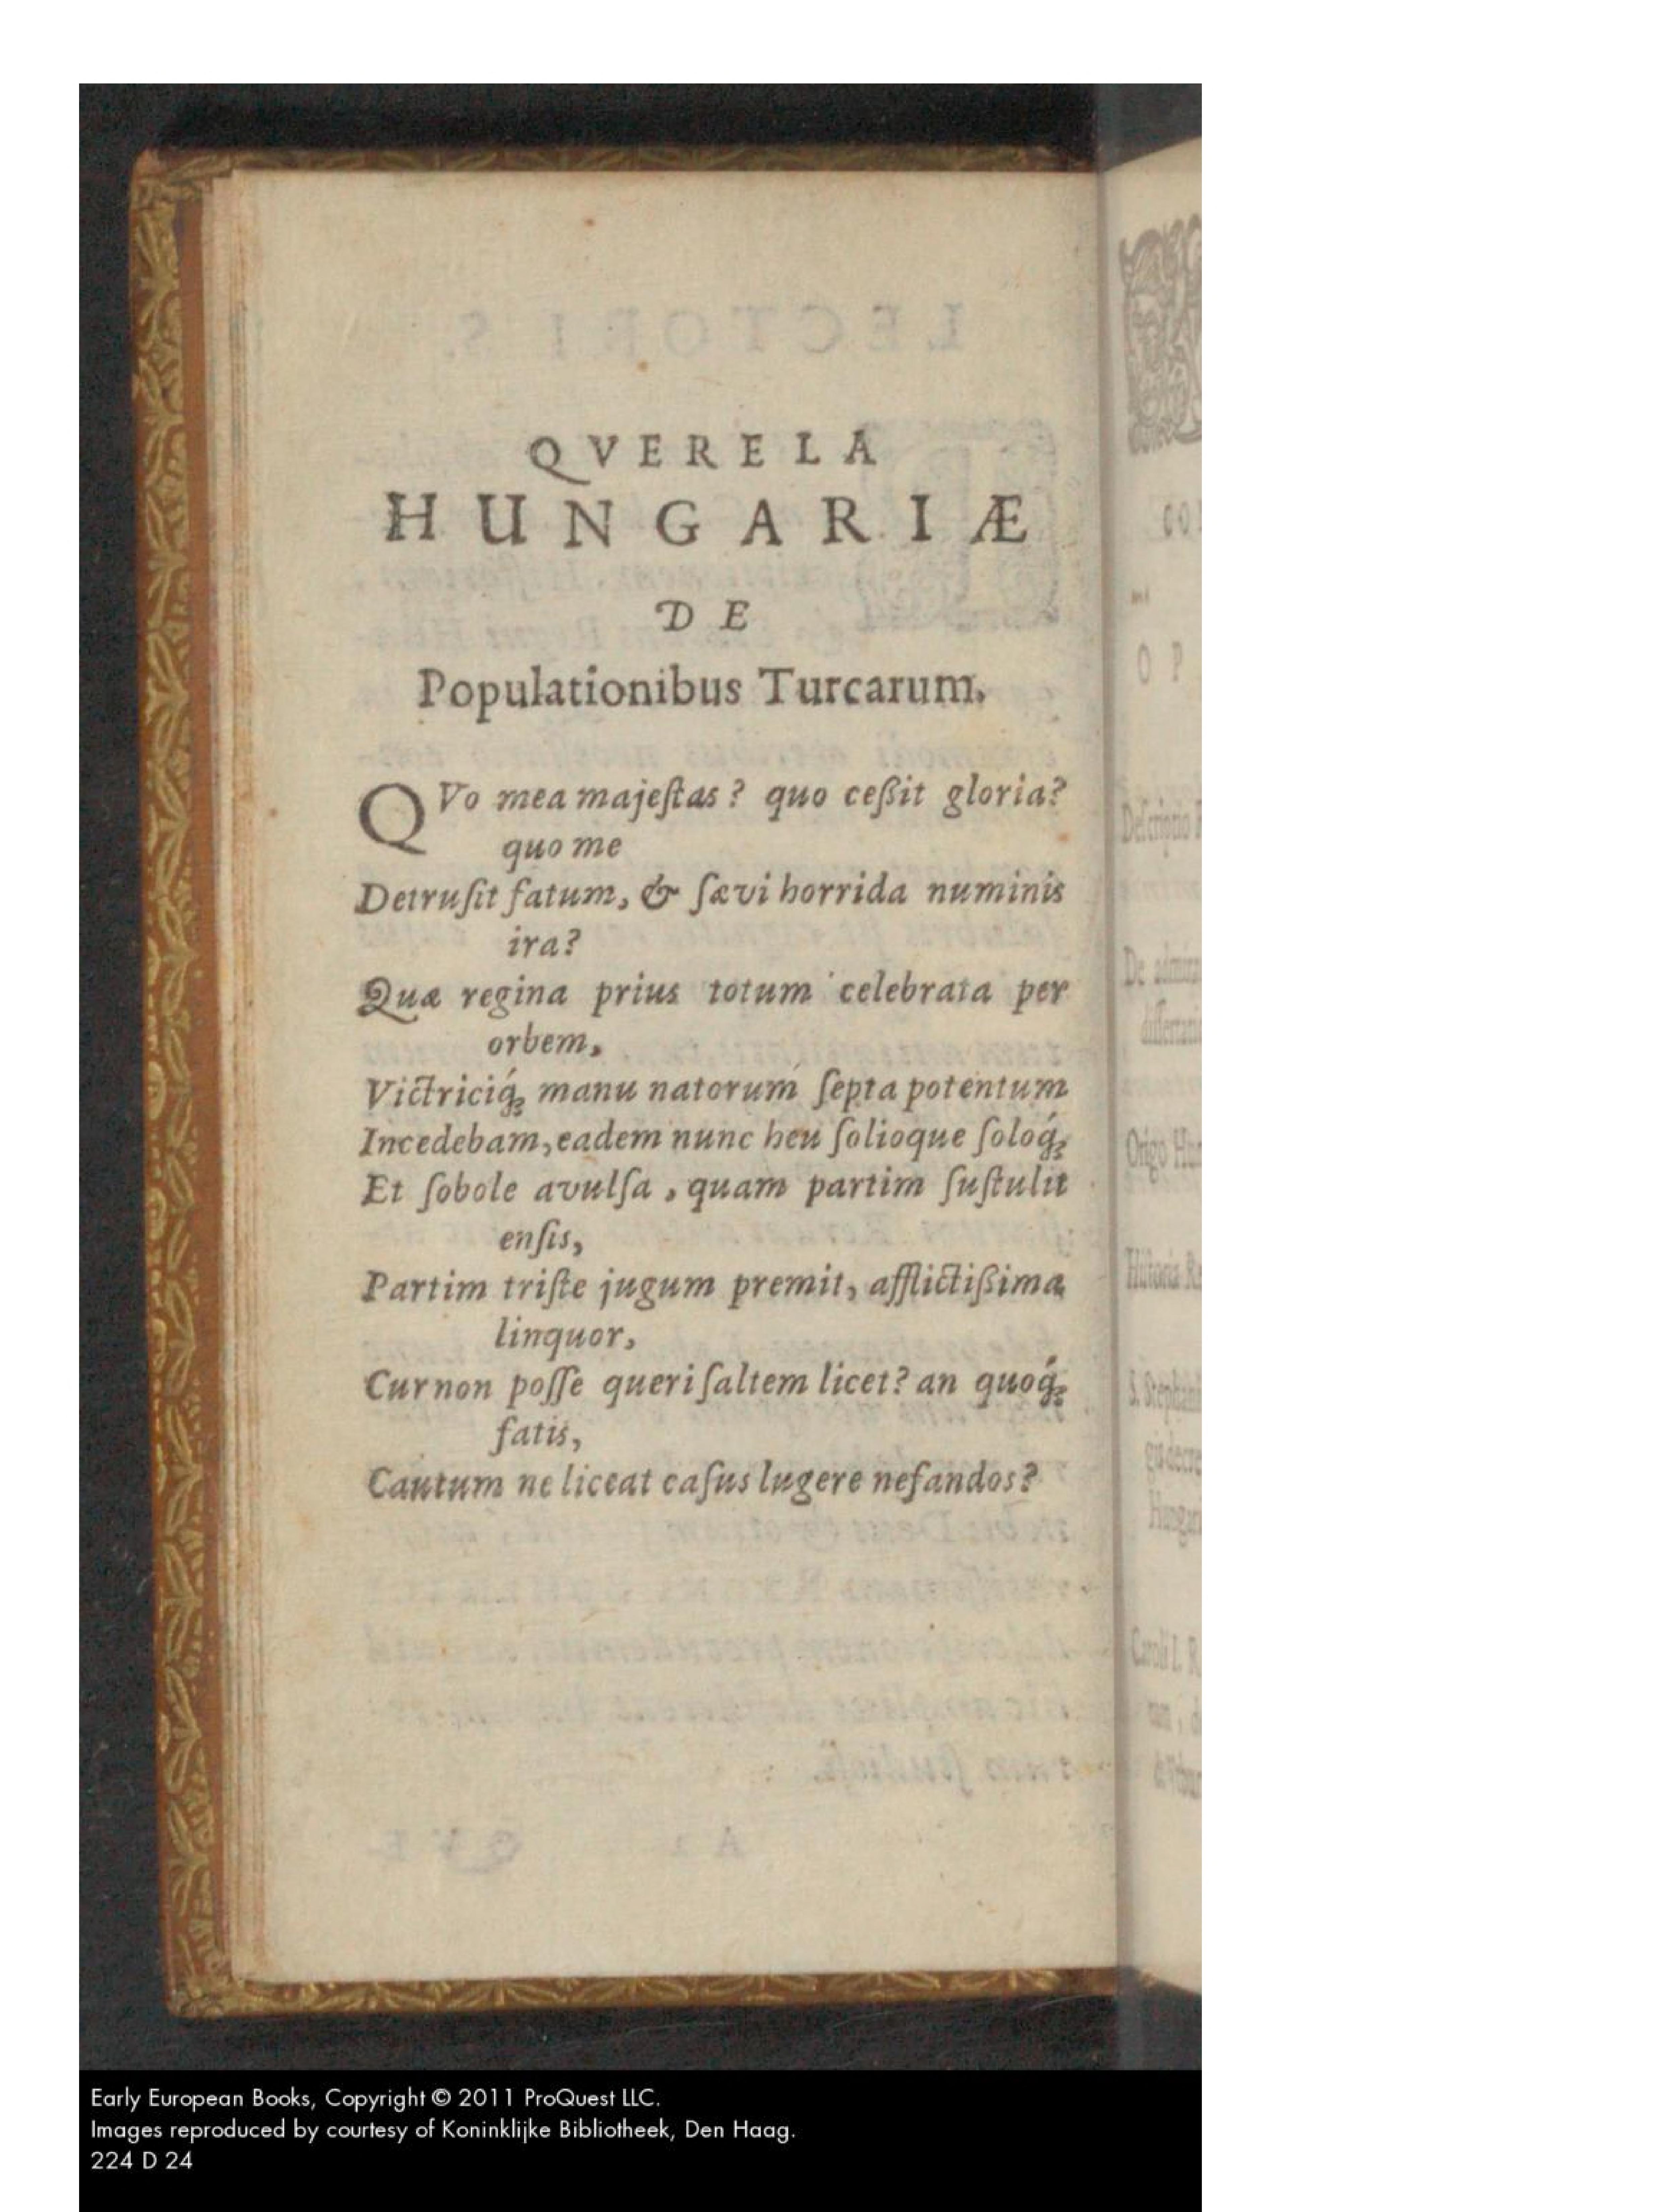 QVERELA
HUNGARIÆ
DE
Populationibus Turcarum.
QVo mea majeſtas? quo ceßit gloria?
quo me
Detruſit fatum, & ſævi horrida numinis
ira?
Quæ regina prius totum celebrata per
orbem,
Victriciq́; manu natorum ſepta potentum
Incedebam, eadem nunc heu ſolioque ſoloq́;
Et ſobole avulſa, quam partim ſuſtulit
enſis,
Partim triſte jugum premit, afflictißima
linquor,
Cur non poſſe queri ſaltem licet? an quoq́;
fatis,
Cautum ne liceat caſus lugere nefandos?
Early European Books, Copyright © 2011 ProQuest LLC.
Images reproduced by courtesy of Koninklijke Bibliotheek, Den Haag.
224 D 24